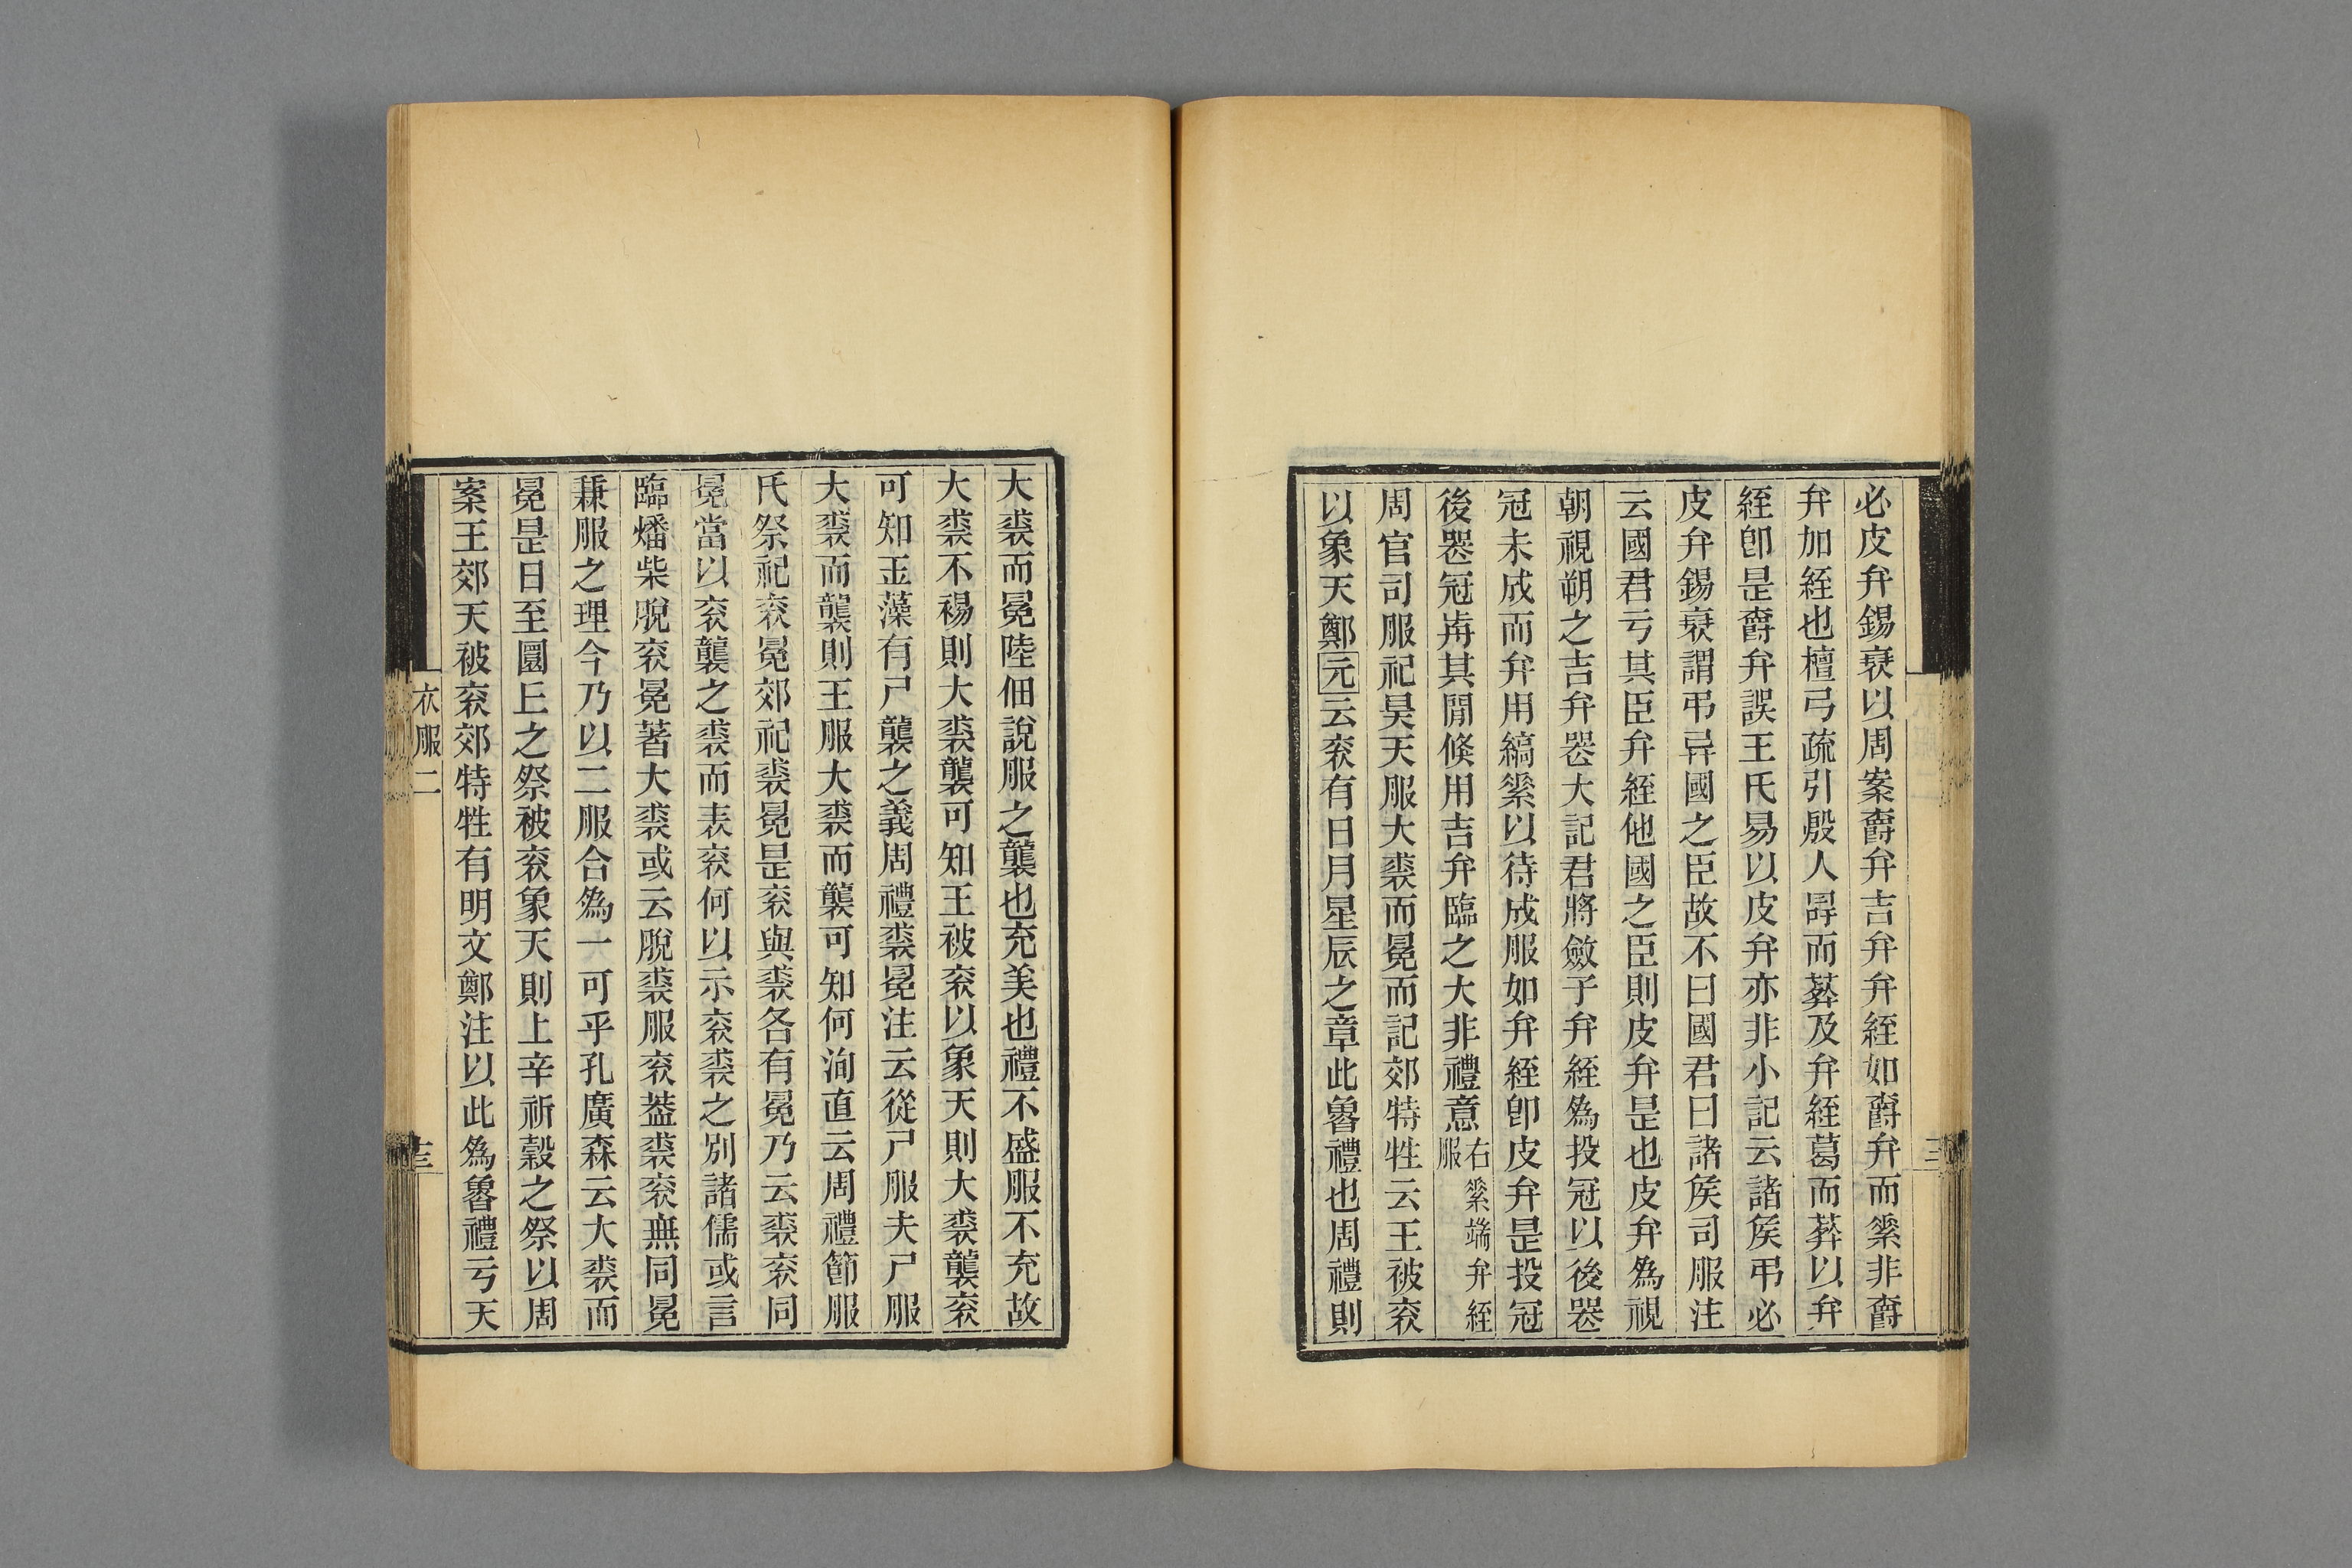 必皮弁錫衰以周案爵弁吉弁弁絰如爵弁而素非爵
弁加絰也檀弓疏引殷人冔而葬及弁絰葛而葬以弁
絰卽是爵弁誤王氏易以皮弁亦非小記云諸矦弔必
皮弁錫衰謂弔异國之臣故不曰國君曰諸矦司服注
云國君亏其臣弁絰他國之臣則皮弁是也皮弁爲視
朝視朔之吉弁喪大記君將斂子弁絰爲投冠以後喪
冠未成而弁用縞素以待成服如弁絰卽皮弁是投冠
後喪冠歬其閒倏用吉弁臨之大非禮意右素端弁絰
服
周官司服祀昊天服大裘而冕而記郊特牲云王被衮
以象天鄭元云衮有日月星辰之章此魯禮也周禮則
大裘而冕陸佃說服之襲也充美也禮不盛服不充故
大裘不裼則大裘襲可知王被衮以象天則大裘襲衮
可知玉藻有尸襲之義周禮裘冕注云從尸服夫尸服
大裘而襲則王服大裘而襲可知何洵直云周禮節服
氏祭祀衮冕郊祀裘冕是衮與裘各有冕乃云裘衮同
冕當以衮襲之裘而表衮何以示衮裘之別諸儒或言
臨燔柴脫衮冕著大裘或云脫裘服衮葢裘衮無同冕
兼服之理今乃以二服合爲一可乎孔廣森云大裘而
冕是日至圜丘之祭被衮象天則上辛祈穀之祭以周
案王郊天被衮郊特牲有明文鄭注以此爲魯禮亏天
衣服二
十三